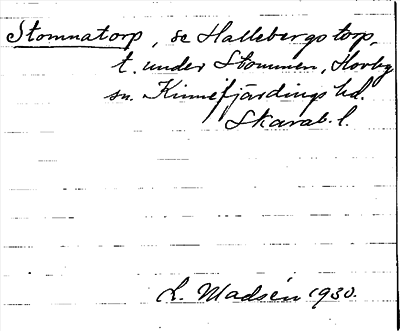 Stomnatorp, se Hallebergstorp,
t. under Stommen, Horby
sn. Kinnefjärdings hd.
Skarab. l.
L. Madsén 1930.